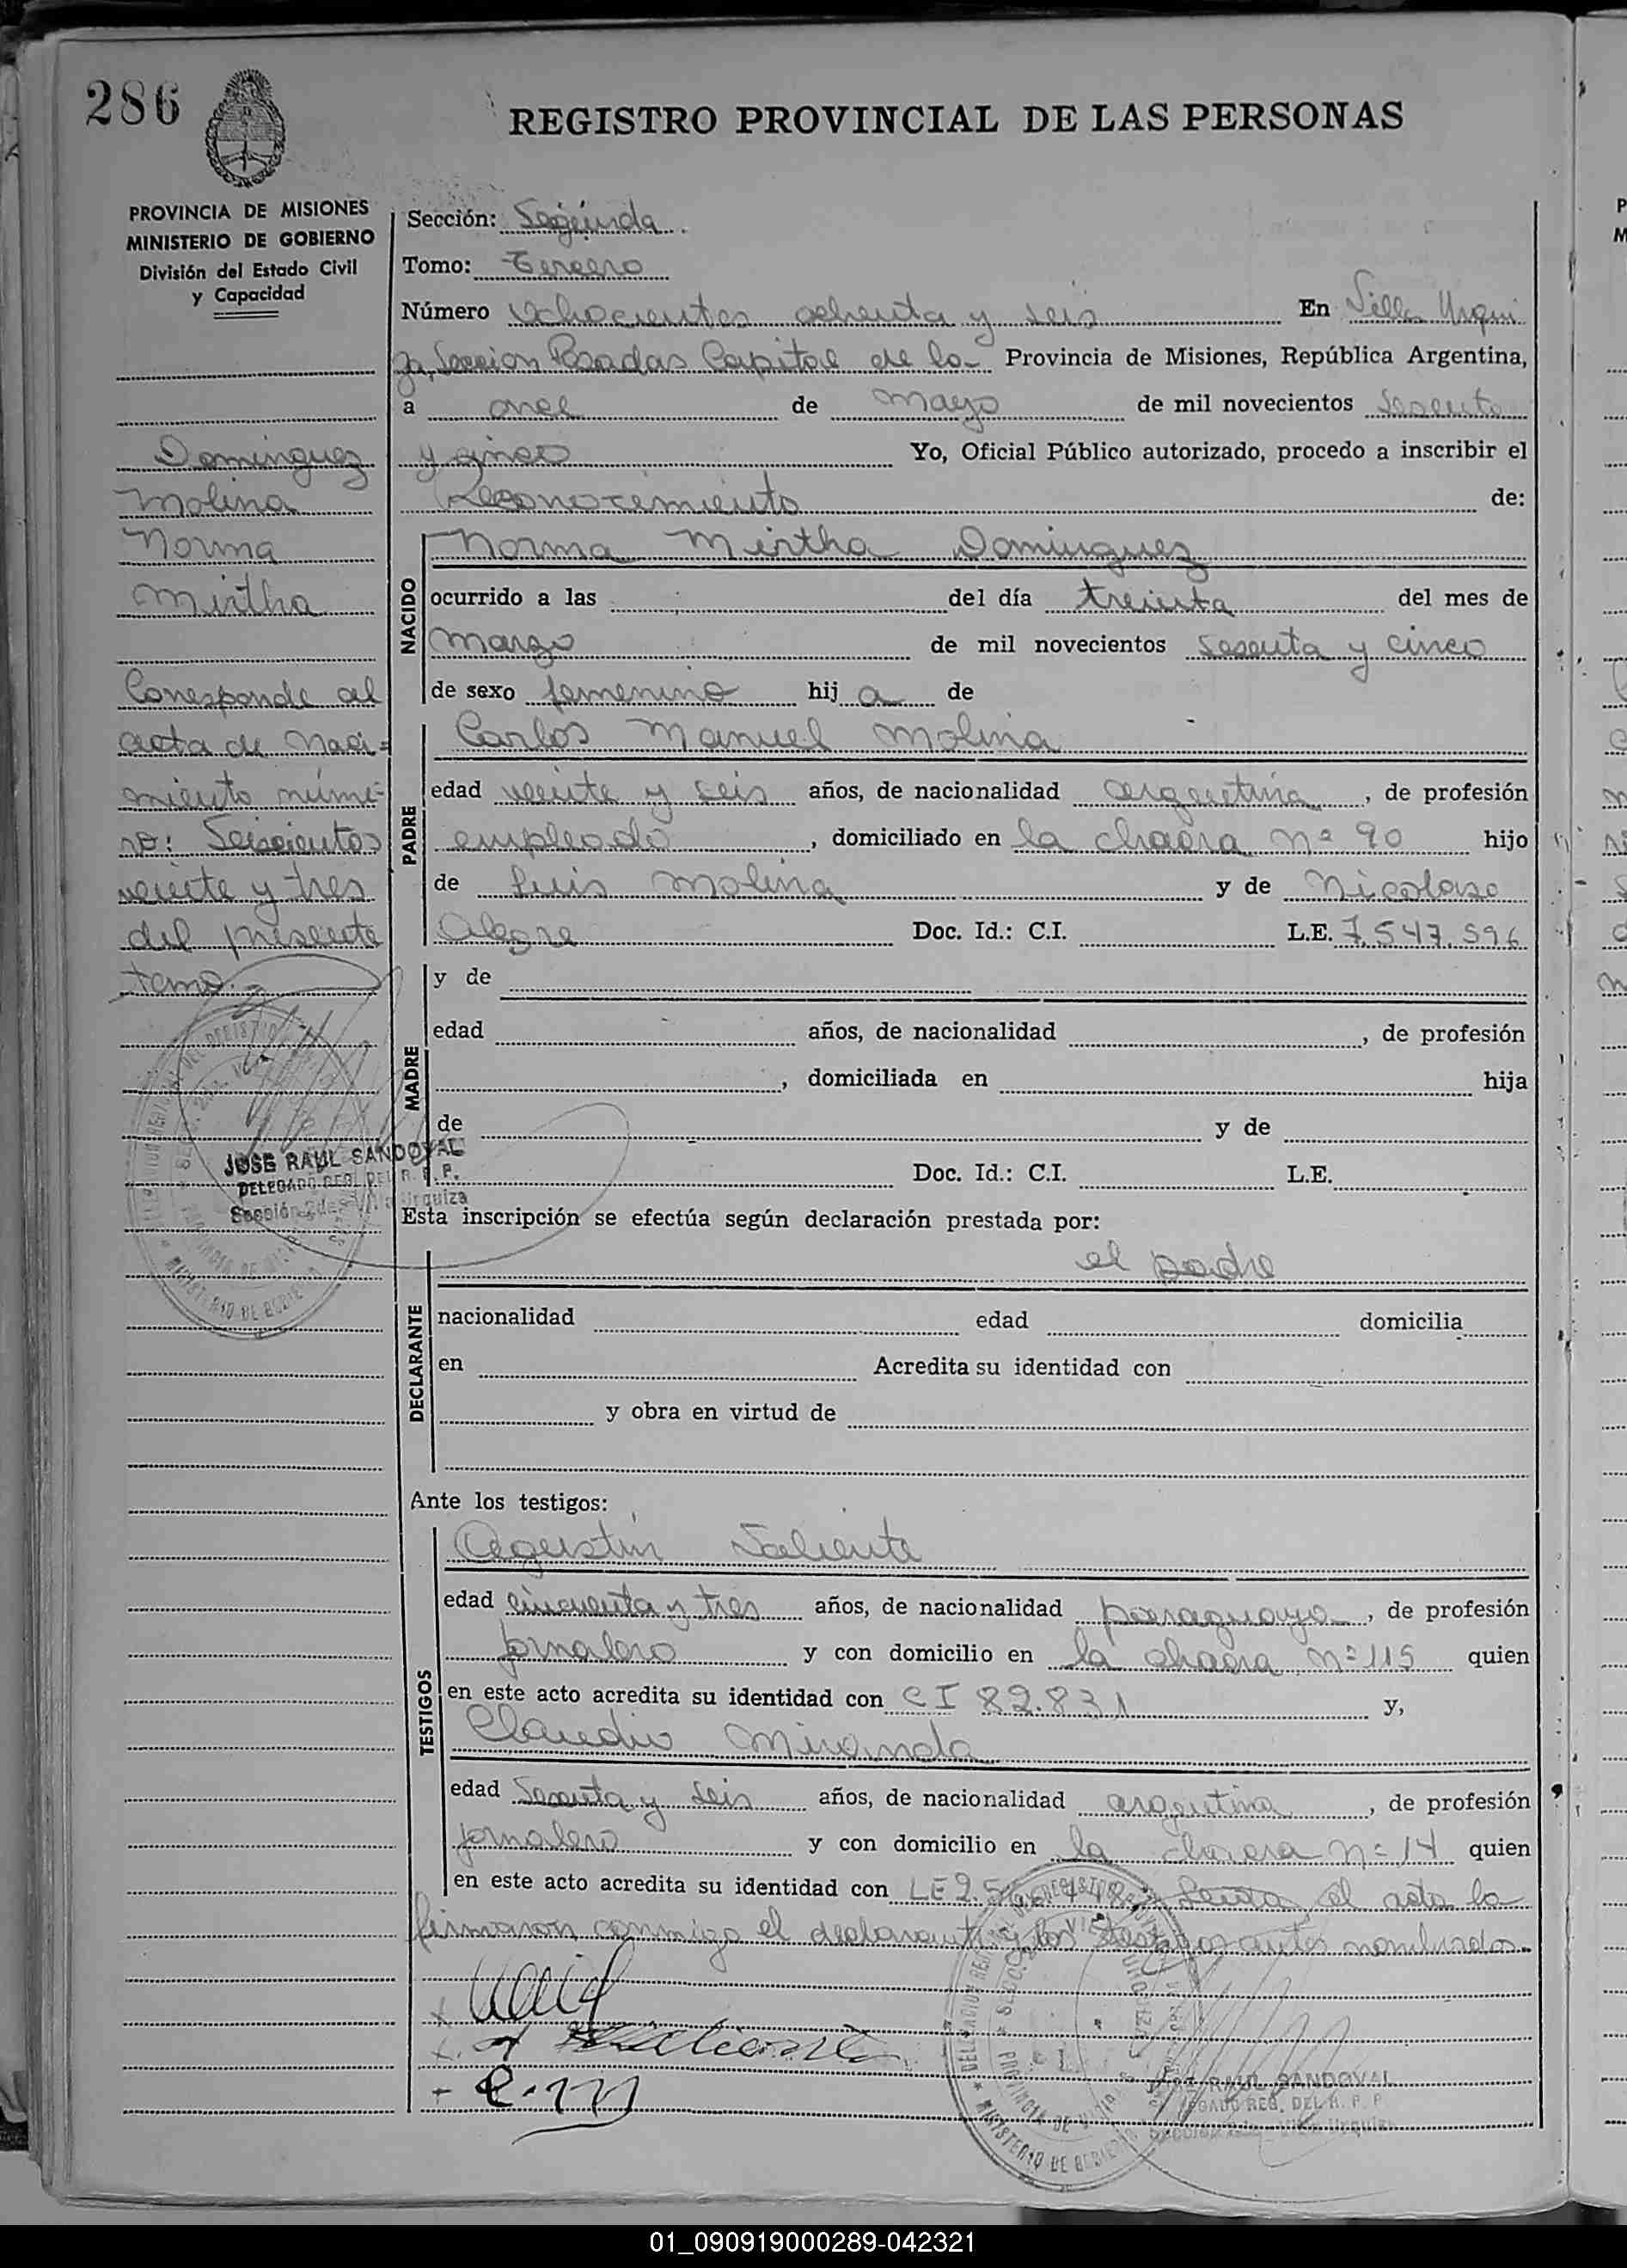 286
REGISTRO PROVINCIAL DE LAS PERSONAS
PROVINCIA DE MISIONES
MINISTERIO DE GOBIERNO
División del Estado Civil
y Capacidad
Dominguez
Molina
Norma
Mirtha
Corresponde al
acta de Naci=
miento núme-
ro: Seiscientos
veinte y tres
del presente
tomo.
JOSE RAUL SANDOVAL
DELEGADO REG. DEL R. P. P.
Sección 2da Villa Urquiza
Sección: Segunda
Tomo: Tercero
Número Ochocientos ochenta y seis En Villa Urqui
za, Seccion Posadas Capital de la Provincia de Misiones, República Argentina,
a once de mayo de mil novecientos sesenta
y cinco Yo, Oficial Público autorizado, procedo a inscribir el
Reconocimiento de:
NACIDO
Norma Mirtha Dominguez
ocurrido a las del día treinta del mes de
marzo de mil novecientos sesenta y cinco
de sexo femenino hij a de
PADRE
Carlos Manuel Molina
edad veinte y seis años, de nacionalidad argentina, de profesión
empleado, domiciliado en la chacra nº 90 hijo
de Luis Molina y de Nicolasa
Alegre Doc. Id.: C.I. L.E. 7.547.596
MADRE
y de
edad años, de nacionalidad , de profesión
, domiciliada en hija
de y de
Doc. Id.: C.I. L.E.
Esta inscripción se efectúa según declaración prestada por:
DECLARANTE
el padre
nacionalidad edad domicilia
en Acredita su identidad con
y obra en virtud de
Ante los testigos:
TESTIGOS
Agustin Valiente
edad cincuenta y tres años, de nacionalidad paraguaya, de profesión
jornalero y con domicilio en la chacra nº 115 quien
en este acto acredita su identidad con CI 82.831 y,
Claudio Miranda
edad Sesenta y seis años, de nacionalidad argentina, de profesión
jornalero y con domicilio en la chacra nº 14 quien
en este acto acredita su identidad con LE 2.5 Leida el acta la
firmaron conmigo el declarante y los testigos antes nombrados.
A Valiente
C. M
JOSE RAUL SANDOVAL
DELEGADO REG. DEL R. P. P.
Sección 2da Villa Urquiza
01_090919000289-042321